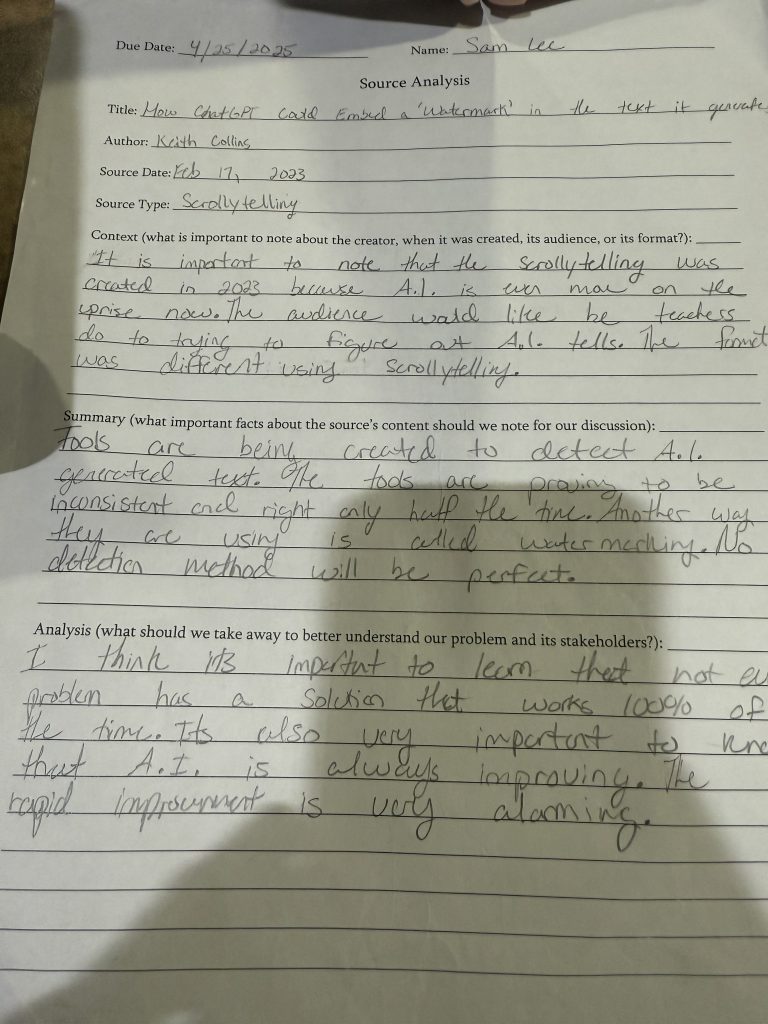 Due Date: 4/25/2025 Name: Sam Lee
Source Analysis
Title: How ChatGPT Could Embed a 'Watermark' in the text it generate
Author: Keith Collins
Source Date: Feb 17, 2023
Source Type: Scrollytelling
Context (what is important to note about the creator, when it was created, its audience, or its format?):
It is important to note that the scrollytelling was
created in 2023 because A.I. is ever more on the
uprise now. The audience would like be teachers
do to trying to figure out A.I. tells. The format
was different using scrollytelling.
Summary (what important facts about the source's content should we note for our discussion):
Tools are being created to detect A.I.
generated text. The tools are proving to be
inconsistent and right only half the time. Another way
they are using is called watermarking. No
detection method will be perfect.
Analysis (what should we take away to better understand our problem and its stakeholders?):
I think its important to learn that not ev
problem has a solution that works 100% of
the time. Its also very important to kno
that A.I. is always improving. The
rapid improvement is very alarming.